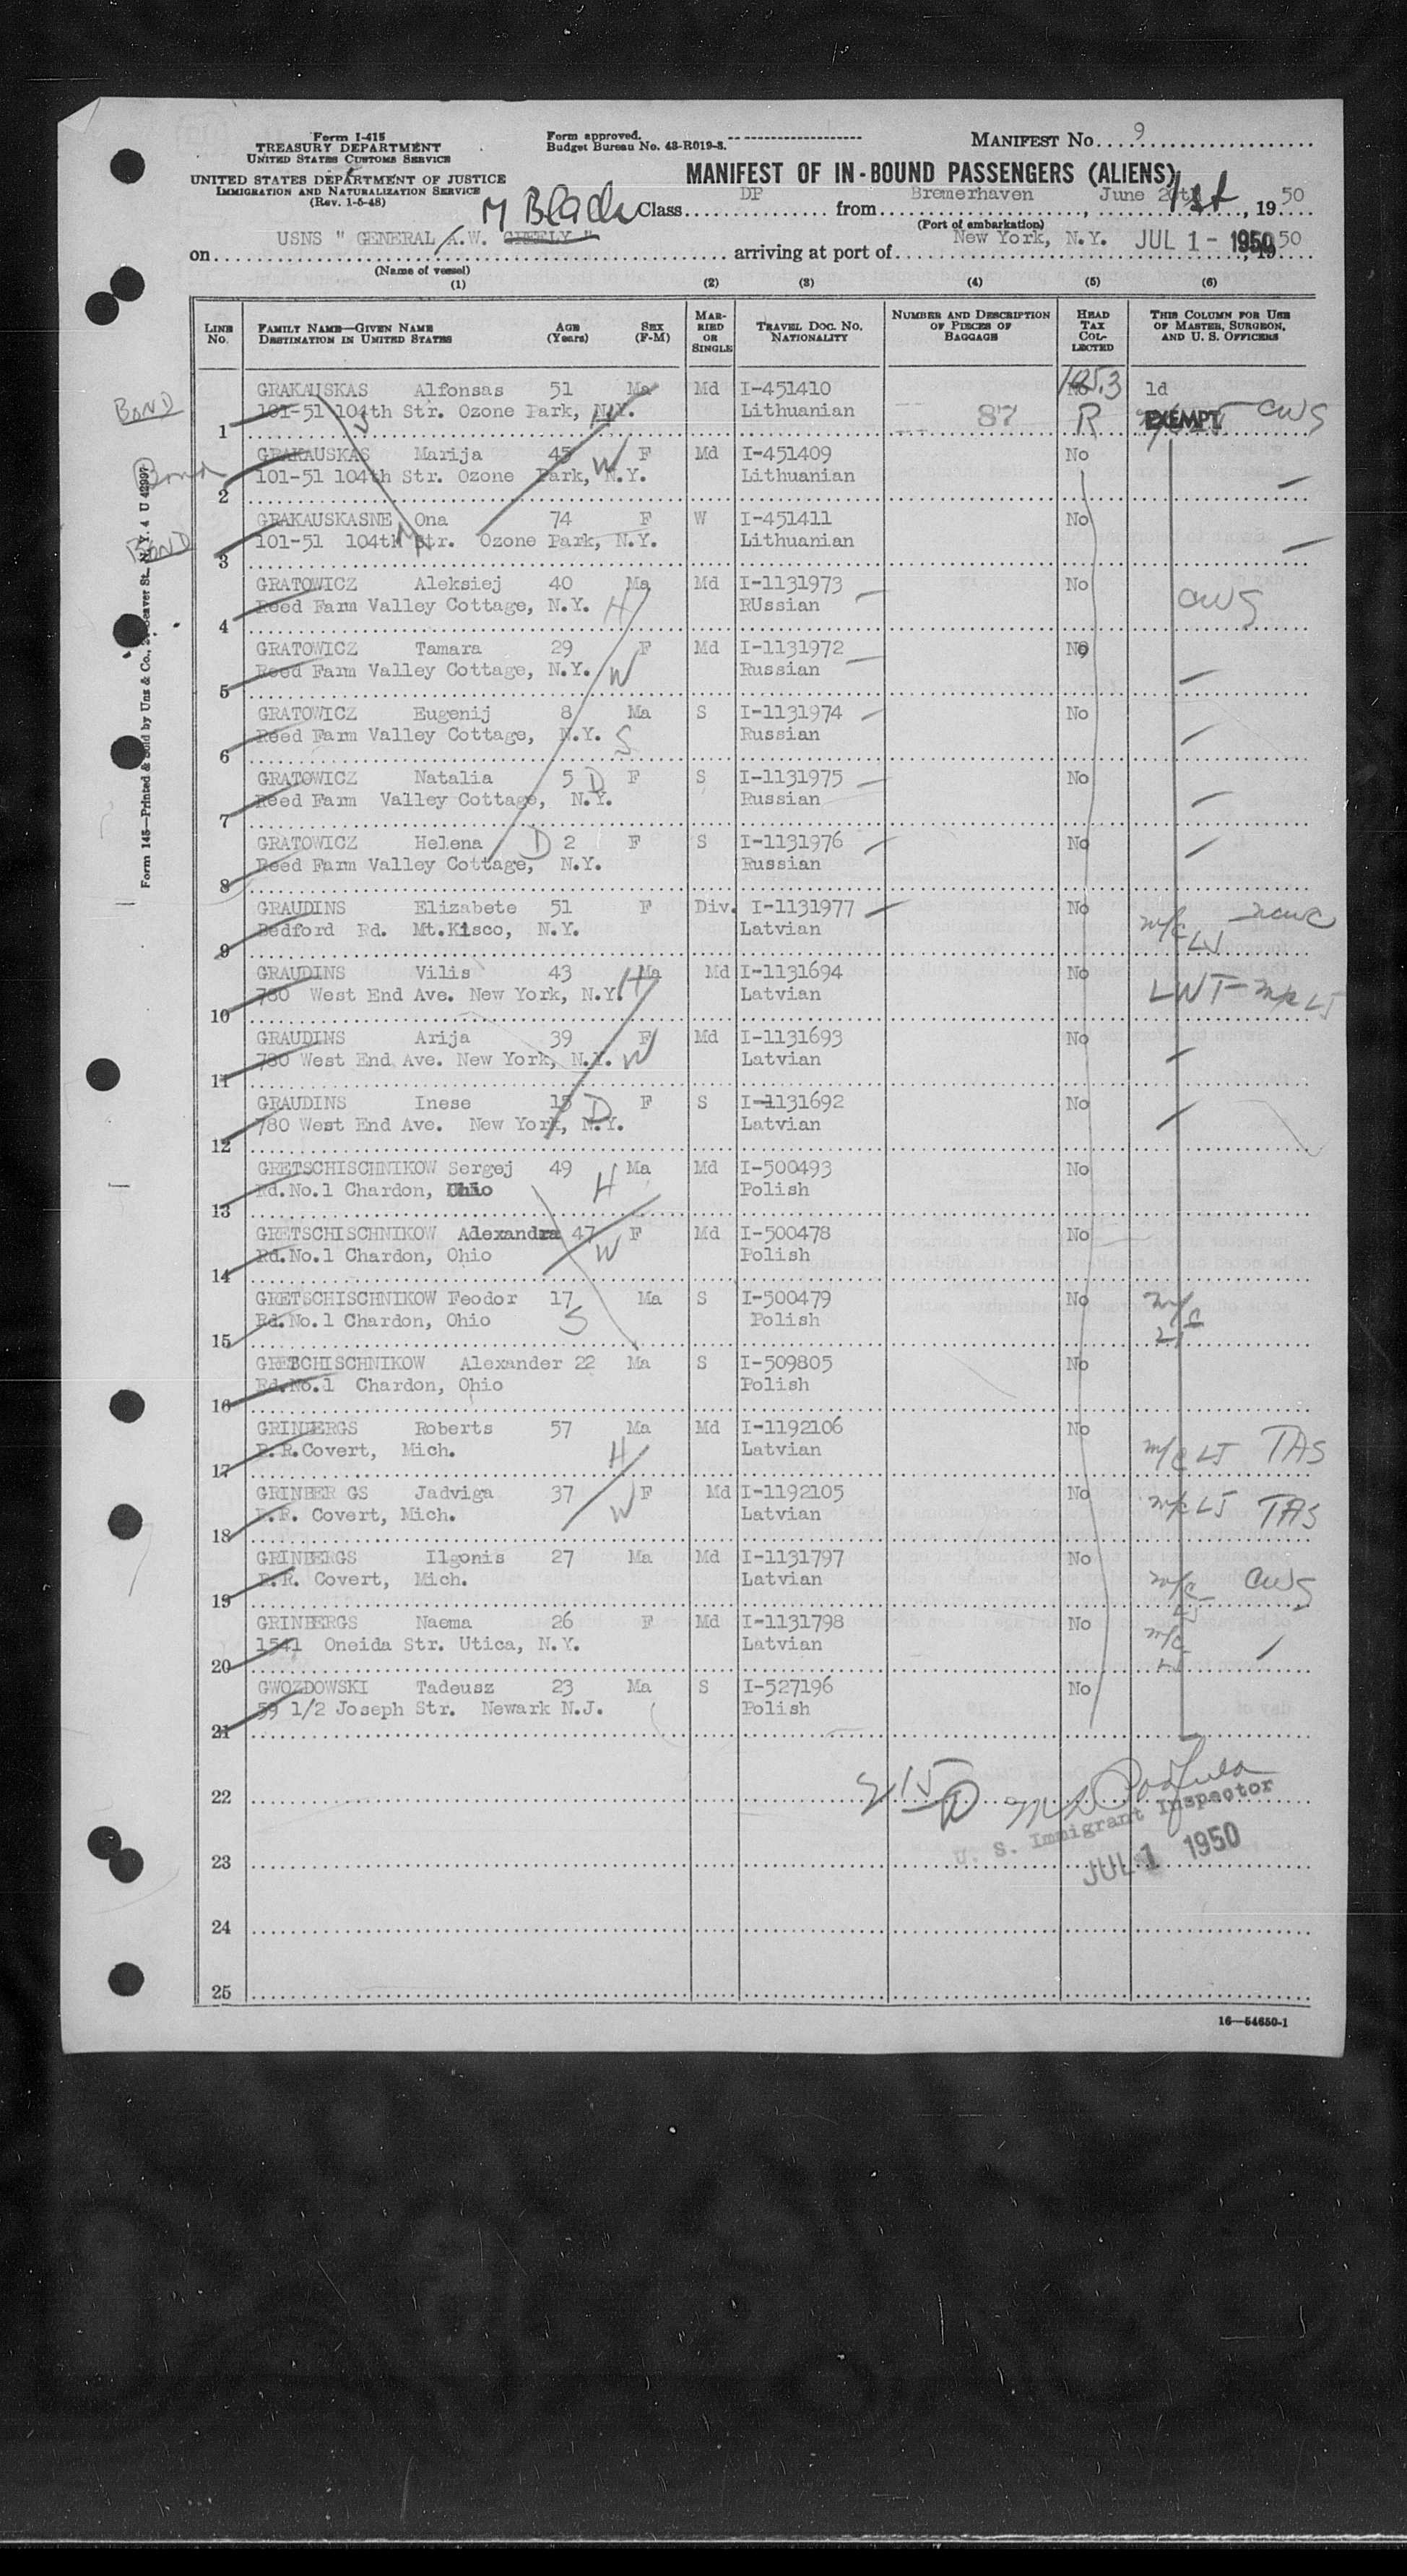 Form I-415
TREASURY DEPARTMENT
UNITED STATES CUSTOMS SERVICE
UNITED STATES DEPARTMENT OF JUSTICE
IMMIGRATION AND NATURALIZATION SERVICE
(Rev. 1-5-48)
Form approved.
Budget Bureau No. 43-R019-3.
MANIFEST No. 9
MANIFEST OF IN-BOUND PASSENGERS (ALIENS)
M Black Class DP from Bremerhaven, June 1st, 19 50
(Port of embarkation)
on USNS " GENERAL A.W. GREELY " arriving at port of New York, N.Y. JUL 1 - 1950 50
(Name of vessel)
(1) (2) (3) (4) (5) (6)
LINE No. FAMILY NAME—GIVEN NAME DESTINATION IN UNITED STATES AGE (Years) SEX (F-M) MARRIED OR SINGLE TRAVEL DOC. NO. NATIONALITY NUMBER AND DESCRIPTION OF PIECES OF BAGGAGE HEAD TAX COLLECTED THIS COLUMN FOR USE OF MASTER, SURGEON, AND U. S. OFFICERS
BOND GRAKAUSKAS Alfonsas 51 Ma Md I-451410 No 1d
1 101-51 104th Str. Ozone Park, N.Y. Lithuanian 87 R EXEMPT CWS
Bond GRAKAUSKAS Marija 45 W F Md I-451409 No
2 101-51 104th Str. Ozone Park, N.Y. Lithuanian
BOND GRAKAUSKASNE Ona 74 F W I-451411 No
3 101-51 104th Str. Ozone Park, N.Y. Lithuanian
GRATOWICZ Aleksiej 40 Ma Md I-1131973 No
4 Reed Farm Valley Cottage, N.Y. H RUssian CWS
GRATOWICZ Tamara 29 F Md I-1131972 No
5 Reed Farm Valley Cottage, N.Y. W Russian
GRATOWICZ Eugenij 8 Ma S I-1131974 No
6 Reed Farm Valley Cottage, N.Y. S Russian
GRATOWICZ Natalia 5 D F S I-1131975 No
7 Reed Farm Valley Cottage, N.Y. Russian
GRATOWICZ Helena D 2 F S I-1131976 No
8 Reed Farm Valley Cottage, N.Y. Russian
GRAUDINS Elizabete 51 F Div. I-1131977 No
9 Bedford Rd. Mt.Kisco, N.Y. Latvian m/c LJ
GRAUDINS Vilis 43 Ma Md I-1131694 No
10 780 West End Ave. New York, N.Y. H Latvian
GRAUDINS Arija 39 F Md I-1131693 No
11 780 West End Ave. New York, N.Y. W Latvian
GRAUDINS Inese 15 D F S I-1131692 No
12 780 West End Ave. New York, N.Y. Latvian
GRETSCHISCHNIKOW Sergej 49 Ma Md I-500493 No
13 Rd.No.1 Chardon, Ohio H Polish
GRETSCHISCHNIKOW Adexandra 47 F Md I-500478 No
14 Rd.No.1 Chardon, Ohio W Polish
GRETSCHISCHNIKOW Feodor 17 Ma S I-500479 No
15 Rd.No.1 Chardon, Ohio S Polish m/c LJ
GRETSCHISCHNIKOW Alexander 22 Ma S I-509805 No
16 Rd.No.1 Chardon, Ohio Polish
GRINBERGS Roberts 57 Ma Md I-1192106 No
17 R.R.Covert, Mich. H Latvian m/c LJ TAS
GRINBER GS Jadviga 37 F Md I-1192105 No
18 R.R. Covert, Mich. W Latvian m/c LJ TAS
GRINBERGS Ilgonis 27 Ma Md I-1131797 No
19 R.R. Covert, Mich. Latvian m/c LJ CWS
GRINBERGS Naema 26 F Md I-1131798 No
20 1541 Oneida Str. Utica, N.Y. Latvian m/c LJ
GWOZDOWSKI Tadeusz 23 Ma S I-527196 No
21 59 1/2 Joseph Str. Newark N.J. Polish
22
U. S. Immigrant Inspector
23 JUL 1 1950
24
25
16—54650-1